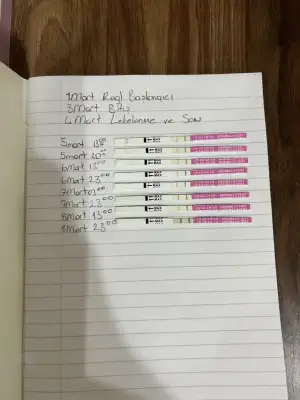 1 Mart Regl Başlangıcı
3 Mart Bitiş
4 Mart Lekelenme ve Son
5 mart 13⁰⁰
5 mart 20⁰⁰
6 Mart 13⁰⁰
6 Mart 23⁰⁰
7 Mart 13⁰⁰
7 Mart 23⁰⁰
8 Mart 13⁰⁰
8 Mart 23⁰⁰